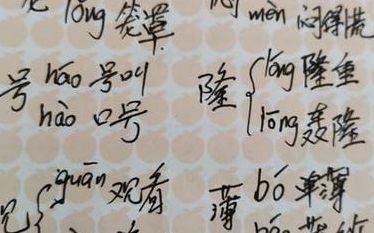 lǒng 笼罩
mèn 闷得慌
号 háo 号叫
hào 口号
隆 lóng 隆重
lōng 轰隆
guān 观看
薄 bó 单薄